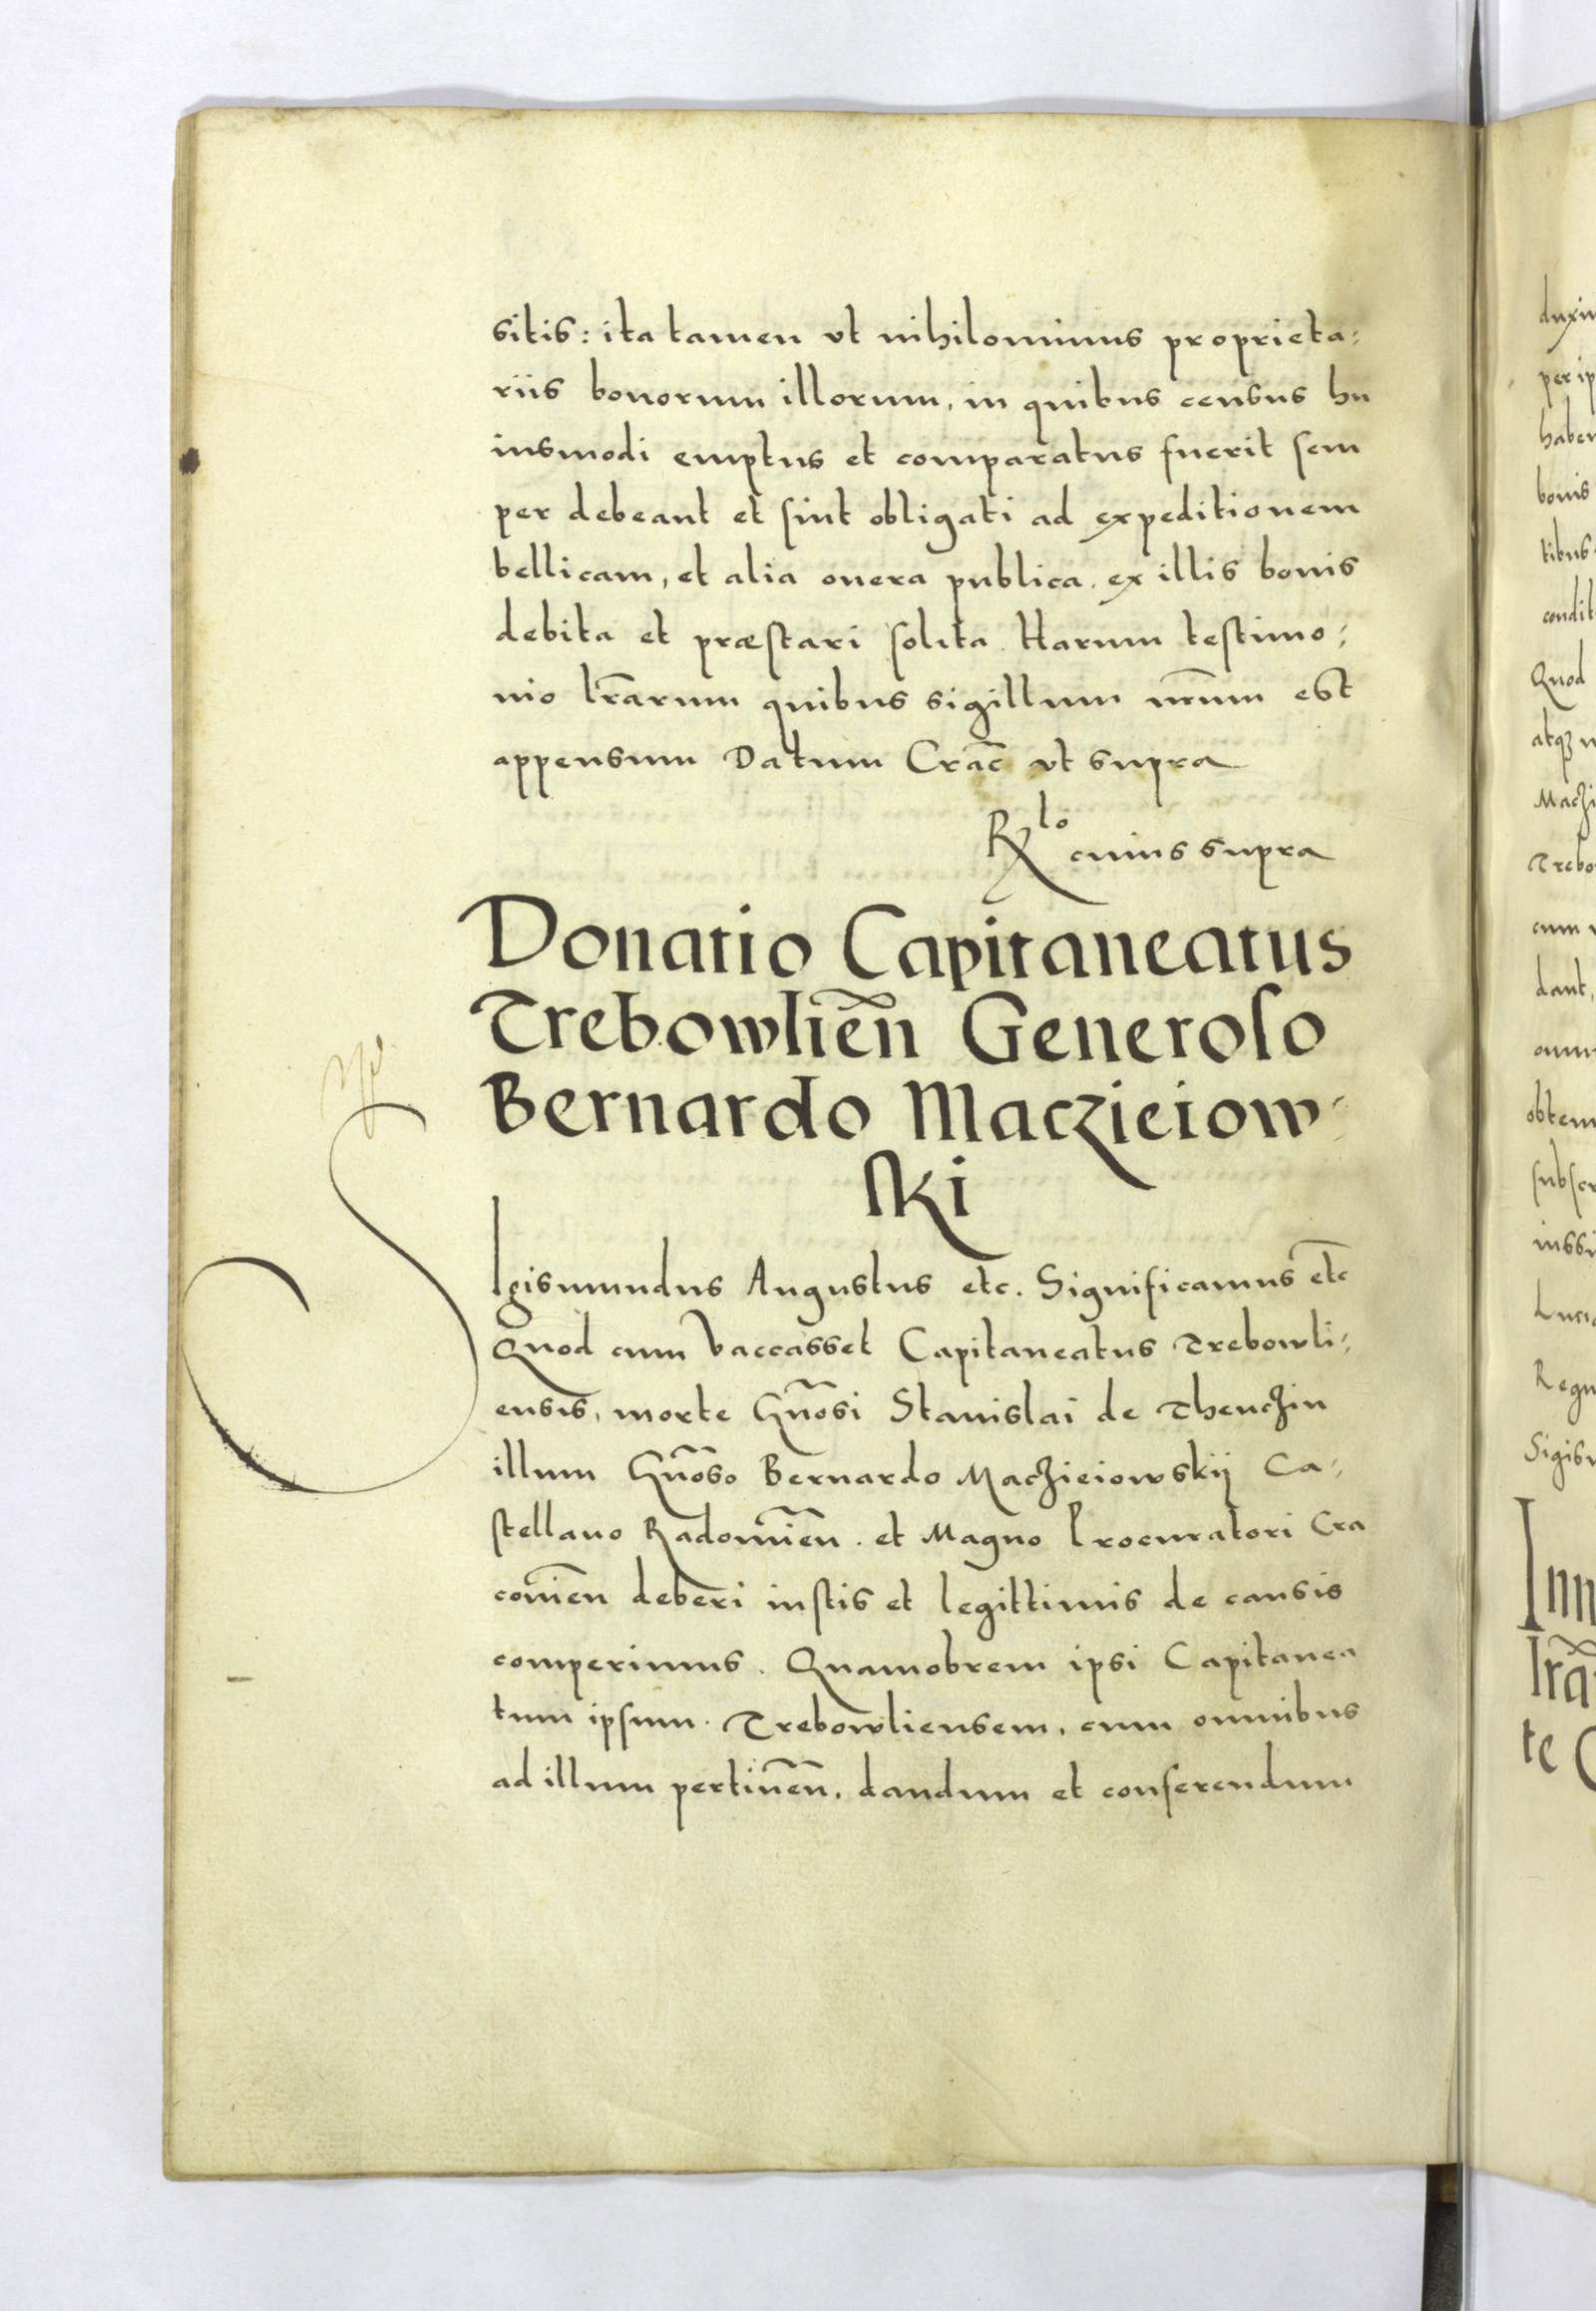 sitis: ita tamen vt nihilominus proprieta:
riis bonorum illorum, in quibus census hu
iusmodi emptus et comparatus fuerit sem
per debeant et sint obligati ad expeditionem
bellicam, et alia onera publica, ex illis bonis
debita et præstari solita. Harum testimo:
nio lr̃arum quibus sigillum nr̃um est
appensum Datum Crac̃ vt supra
Rlo cuius supra
Donatio Capitaneatus
Trebowlien̄ Generoso
Bernardo Maczieiow:
ski
SIgismundus Augustus etc. Significamus etc̃
Quod cum vaccasset Capitaneatus Trebowli:
ensis, morte Gn̄osi Stanislai de Thenczin
illum Gn̄oso Bernardo Maczieiowskij Ca:
stellano Radomien̄. et Magno Procuratori Cra
couien̄ deberi iustis et legittimis de causis
comperimus. Quamobrem ipsi Capitanea
tum ipsum Trebowliensem, cum omnibus
ad illum pertinen̄. dandum et conferendum
duxi
per ip
haber
bonis
tibus
condit
Quod
atqꝫ
Maczi
Trebo
cum
dant,
omn
obtem
subscr
iussi
Luci
Regn
Sigis
Inn
lr̃a
te